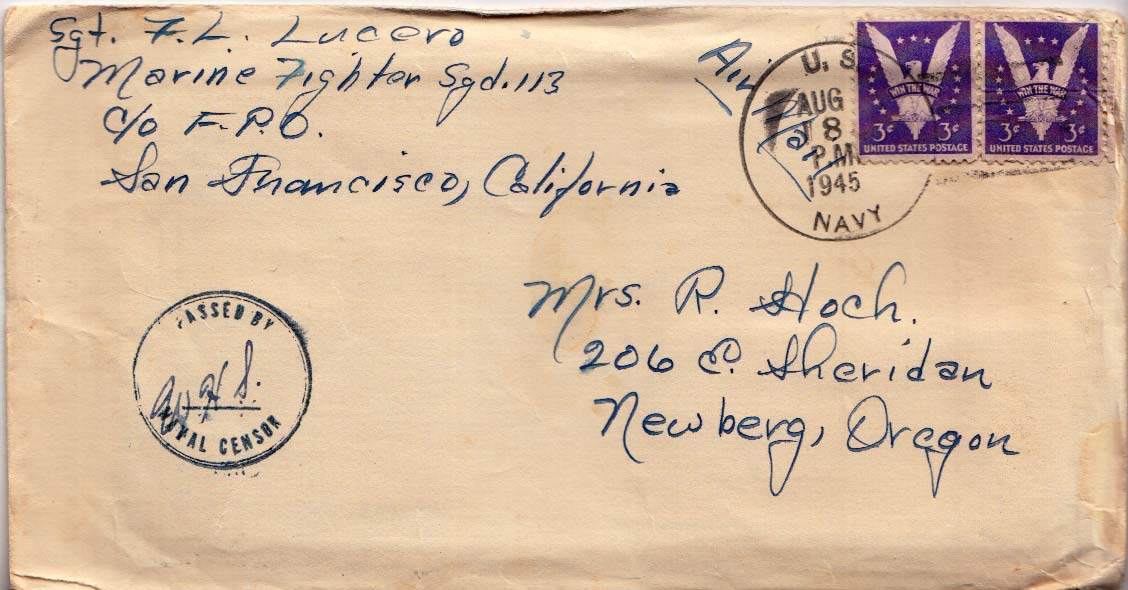 Sgt. F. L. Lucero
Marine Fighter Sqd. 113
c/o F.P.O.
San Francisco, California
Air Mail
U. S.
AUG
18
P.M.
1945
NAVY
WIN THE WAR
3¢ 3¢
UNITED STATES POSTAGE
WIN THE WAR
3¢ 3¢
UNITED STATES POSTAGE
PASSED BY
NAVAL CENSOR
Mrs. R. Hoch.
206 E. Sheridan
Newberg, Oregon